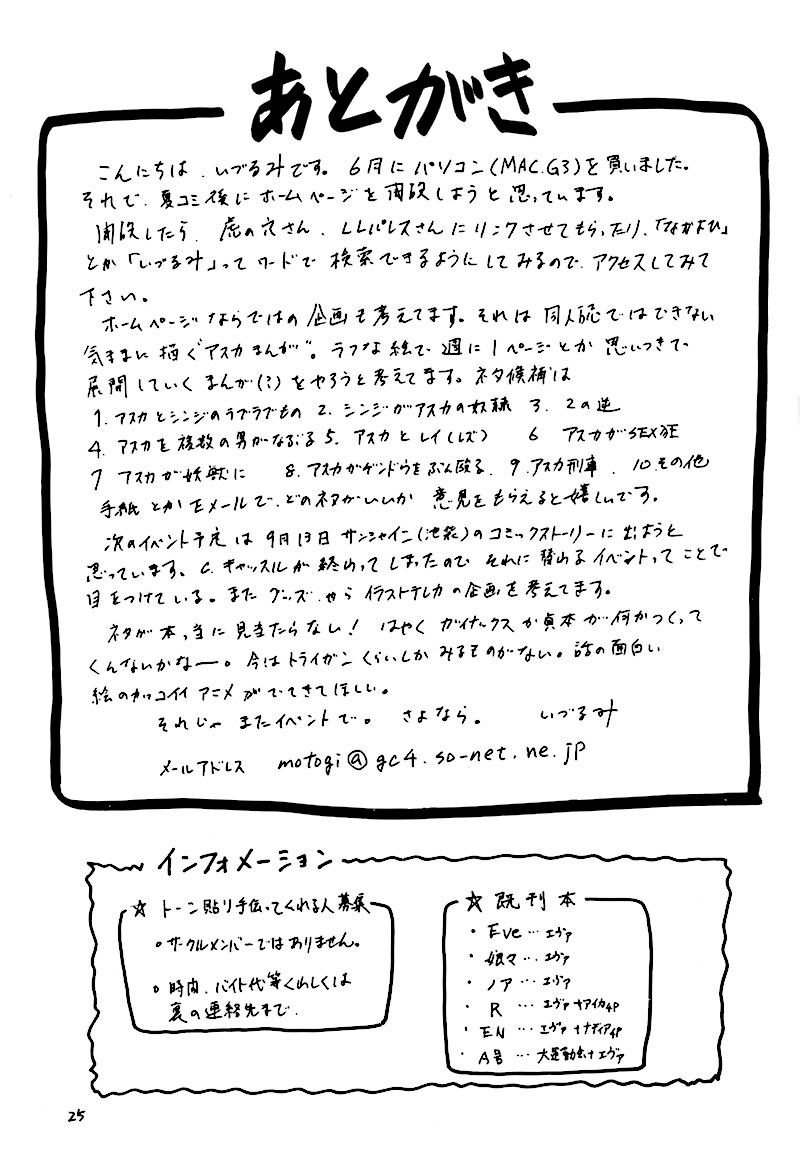 あとがき
こんにちは、いづるみです。6月にパソコン(MAC.G3)を買いました。
それで、夏コミ後にホームページを開設しようと思っています。
開設したら、虎の穴さん、LLパレスさんにリンクさせてもらったり、「なかよひ」
とか「いづるみ」ってワードで検索できるようにしてみるので、アクセスしてみて
下さい。
ホームページならではの企画も考えてます。それは同人誌ではできない
気ままに描く“アスカまんが”。ラフな絵で週に1ページとか思いつきで
展開していくまんが(?)をやろうと考えてます。ネタ候補は
1. アスカとシンジのラブラブもの 2. シンジがアスカの奴隷 3. 2の逆
4. アスカを複数の男がなぶる 5. アスカとレイ(レズ) 6 アスカがSEX狂
7 アスカが妖獣に 8. アスカがゲンドウをぶん殴る. 9. アスカ刑事. 10. その他
手紙とかEメールで、どのネタがいいか意見をもらえると嬉しいです。
次のイベント予定は9月13日サンシャイン(池袋)のコミックストーリーに出ようと
思っています。C.キャッスルが終わってしまったので それに替わるイベントってことで
目をつけている。またグッズやらイラストテレカの企画を考えてます。
ネタが本っ当に見当たらない! はやくガイナックスか貞本が何かつくって
くんないかなー。今はトライガンくらいしかみるものがない。話の面白い
絵のカッコイイアニメがでてきてほしい。
それじゃまたイベントで。さよなら。 いづるみ
メールアドレス motogi@gc4.so-net.ne.jp
インフォメーション
☆ トーン貼り手伝ってくれる人募集
・サークルメンバーではありません。
・時間、バイト代等くわしくは
裏の連絡先まで.
☆ 既刊本
・Eve…エヴァ
・娘々…エヴァ
・ノア…エヴァ
・R …エヴァ+アイカ4P
・EN …エヴァ+ナディア4P
・A号 …大運動会+エヴァ
25